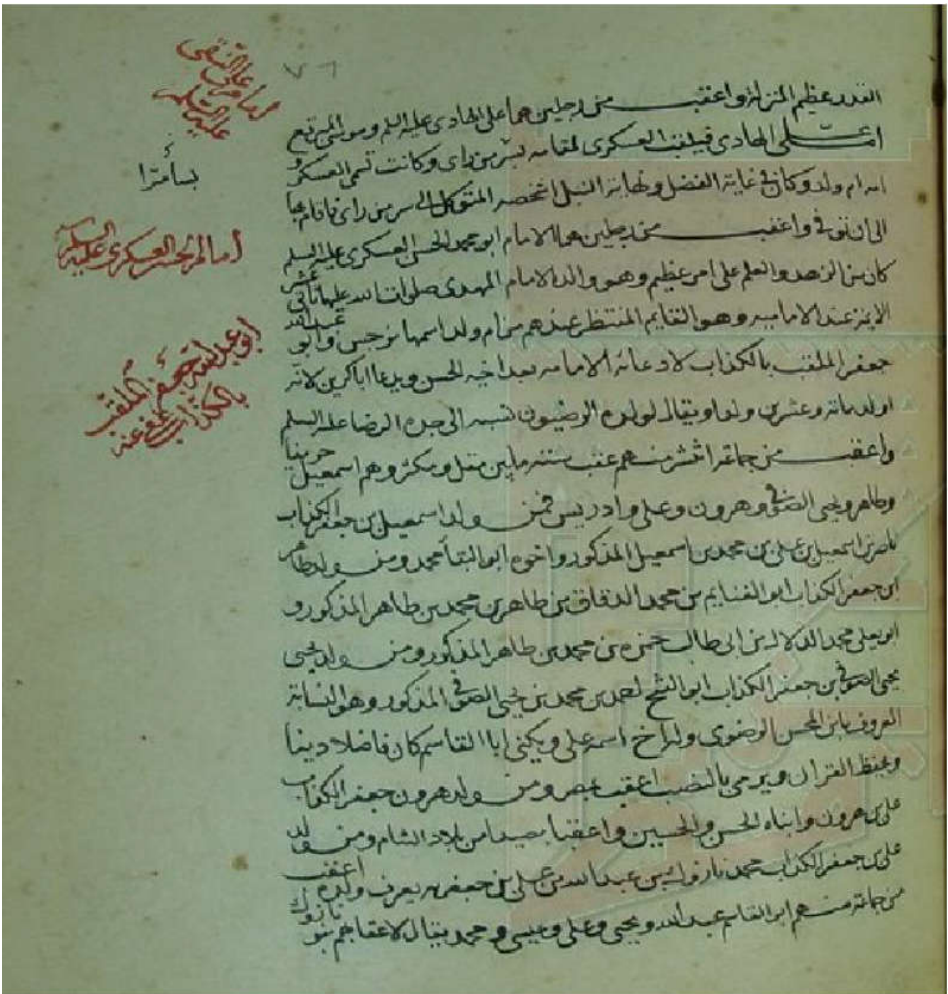 ٧٦
القدر عظيم المنزلة واعقب من رجلين هما على الهادى عليه السلم وموسى المبرقع
اما على الهادى فيلقب العسكرى لمقامه بسر من راى وكانت تسمى العسكر و
امه ام ولد وكان فى غاية الفضل ونهاية النبل اشخصه المتوكل الى سر من راى فاقام بها
الى ان توفى واعقب من رجلين هما الامام ابو محمد الحسن العسكرى عليه السلم
كان من الزهد والعلم على امر عظيم وهو والد الامام المهدى صلوات الله عليهما ثانى عشر
الايمة عند الامامية وهو القايم المنتظر عندهم من ام ولد اسمها نرجس وابو عبد الله
جعفر الملقب بالكذاب لادعائه الامامة بعد اخيه الحسن ويدعا ابا كرين لانه
اولد ماية وعشرين ولدا ويقال لولده الرضيون نسبه الى جده الرضا عليه السلم
واعقب من جماعة انتشر منهم عقب ستة ما بين مقل ومكثر وهم اسمعيل حريفا
وطاهر ويحيى الصوفى وهرون وعلى وادريس فمن ولد اسمعيل بن جعفر الكذاب
ناصر بن اسمعيل بن على بن محمد بن اسمعيل المذكور واخوه ابو البقا محمد ومن ولد طاهر
ابن جعفر الكذاب ابو الغنايم بن محمد الدقاق بن طاهر بن محمد بن طاهر المذكور و
ابو يعلى محمد الدلال بن ابى طالب حمزه بن محمد بن طاهر المذكور ومن ولد يحيى
يحيى الصوفى بن جعفر الكذاب ابو الفتح احمد بن محمد بن يحيى الصوفى المذكور وهو النسابة
المعروف بابن المحسن الرضوى وله اخ اسمه على ويكنى ابا القاسم كان فاضلا دينا
وحفظ القران ويرمى بالنصب اعقب بمصر ومن ولد هرون جعفر الكذاب
على بن هرون وابناه الحسن والحسين واعقبا بصيدا من بلاد الشام ومن ولد
على بن جعفر الكذاب محمد نازوك بن عبد الله بن على بن جعفر به يعرف ولده اعقب
من جماعة منهم ابو القاسم عبد الله ويحيى وعلى وعيسى ومحمد يقال لاعقابهم بنو نازوك
امام على النقى
عليه السلم
بسامرا
امام الحسن العسكرى عليه السلم
ابو عبد الله جعفر الملقب
بالكذاب عفى عنه